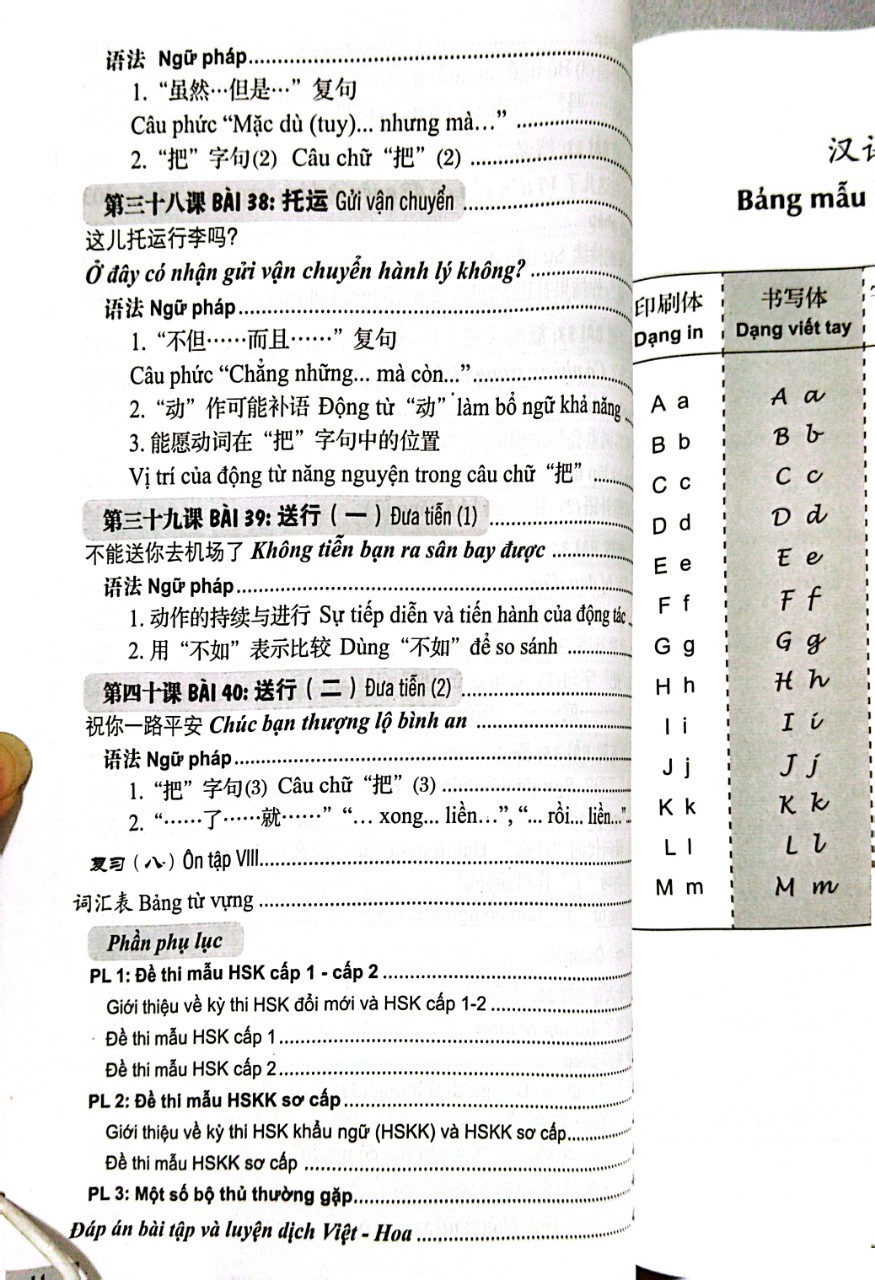 语法 Ngữ pháp
1. “虽然…但是…” 复句
Câu phức “Mặc dù (tuy)... nhưng mà...”
2. “把” 字句(2) Câu chữ “把” (2)
第三十八课 BÀI 38: 托运 Gửi vận chuyển
这儿托运行李吗?
Ở đây có nhận gửi vận chuyển hành lý không?
语法 Ngữ pháp
1. “不但……而且……” 复句
Câu phức “Chẳng những... mà còn...”
2. “动” 作可能补语 Động từ “动” làm bổ ngữ khả năng
3. 能愿动词在 “把” 字句中的位置
Vị trí của động từ năng nguyện trong câu chữ “把”
第三十九课 BÀI 39: 送行 (一) Đưa tiễn (1)
不能送你去机场了 Không tiễn bạn ra sân bay được
语法 Ngữ pháp
1. 动作的持续与进行 Sự tiếp diễn và tiến hành của động tác
2. 用 “不如” 表示比较 Dùng “不如” để so sánh
第四十课 BÀI 40: 送行 (二) Đưa tiễn (2)
祝你一路平安 Chúc bạn thượng lộ bình an
语法 Ngữ pháp
1. “把” 字句(3) Câu chữ “把” (3)
2. “……了……就……” “... xong... liền...”, “... rồi... liền...”
复习 (八) Ôn tập VIII
词汇表 Bảng từ vựng
Phần phụ lục
PL 1: Đề thi mẫu HSK cấp 1 - cấp 2
Giới thiệu về kỳ thi HSK đổi mới và HSK cấp 1-2
Đề thi mẫu HSK cấp 1
Đề thi mẫu HSK cấp 2
PL 2: Đề thi mẫu HSKK sơ cấp
Giới thiệu về kỳ thi HSK khẩu ngữ (HSKK) và HSKK sơ cấp
Đề thi mẫu HSKK sơ cấp
PL 3: Một số bộ thủ thường gặp
Đáp án bài tập và luyện dịch Việt - Hoa
汉
Bảng mẫu
印刷体 书写体
Dạng in Dạng viết tay
A a A a
B b B b
C c C c
D d D d
E e E e
F f F f
G g G g
H h H h
I i I i
J j J j
K k K k
L l L l
M m M m